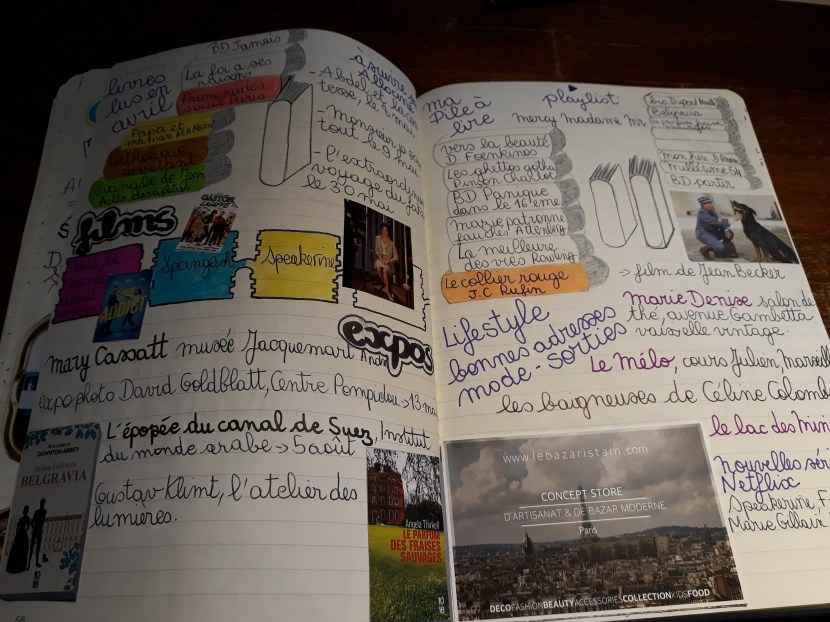 livres
lus en
avril
BD Jamais
La foi a ses
raisons
Promenades
sous Paris
Papa et
maman
catholique
Evangile de Jean
films
GASTON
LAGAFFE
Spanglish
Speakerine
AUDICT
à suivre
- Abdel et la com
tesse, le 8 mai
- Monsieur je sais
tout le 9 mai
- l'extraordinaire
voyage du fakir
le 30 mai
expos
Mary Cassatt musée Jacquemart André
expo photo David Goldblatt, Centre Pompidou → 13 mai
L'épopée du canal de Suez, Institut
du monde arabe → 5 août
Gustav Klimt, l'atelier des
lumières.
DOWNTON ABBEY
Julian Fellowes
BELGRAVIA
10
18
Angela Thirkell
LE PARFUM
DES FRAISES
SAUVAGES
10
18
68
ma
Pile à
lire
playlist
mercy madame Mr
vers la beauté
D. Foenkinos
Les ghettos du gotha
Pinçon Charlot
BD Panique
dans le 16ème
marie patronne
fauchés Attenberg
La meilleure
des vies Rowling
Le collier rouge
J.C Rufin
Belgravia
Le parfum fraises
mon frère D Pennac
millésime 54
BD partir
→ film de Jean Becker
Lifestyle
bonnes adresses
mode - sorties
Marie Denise salon de
thé, avenue Gambetta
vaisselle vintage.
Le Mélo, cours Julien, Marseille
les baigneuses de Céline Colomb
le lac des Mini
nouvelles séri
Netflix
Speakerine, F
Marie Gillain
www.lebazaristain.com
CONCEPT STORE
D'ARTISANAT & DE BAZAR MODERNE
Paris
DECOFASHIONBEAUTYACCESSORIESCOLLECTIONKIDSFOOD